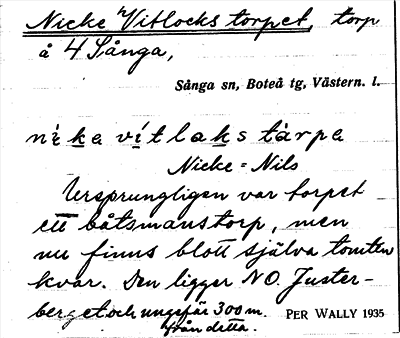 Nicke Vitlocks torpet, torp
å 4 Sånga,
Sånga sn, Boteå tg, Västern. l.
nìka vítlaks tàrpa
Nicke = Nils
Ursprungligen var torpet
ett båtsmanstorp, men
nu finns blott själva tomten
kvar. Den ligger NO. Juster-
berget och ungefär 300 m.
från detta.
PER WALLY 1935